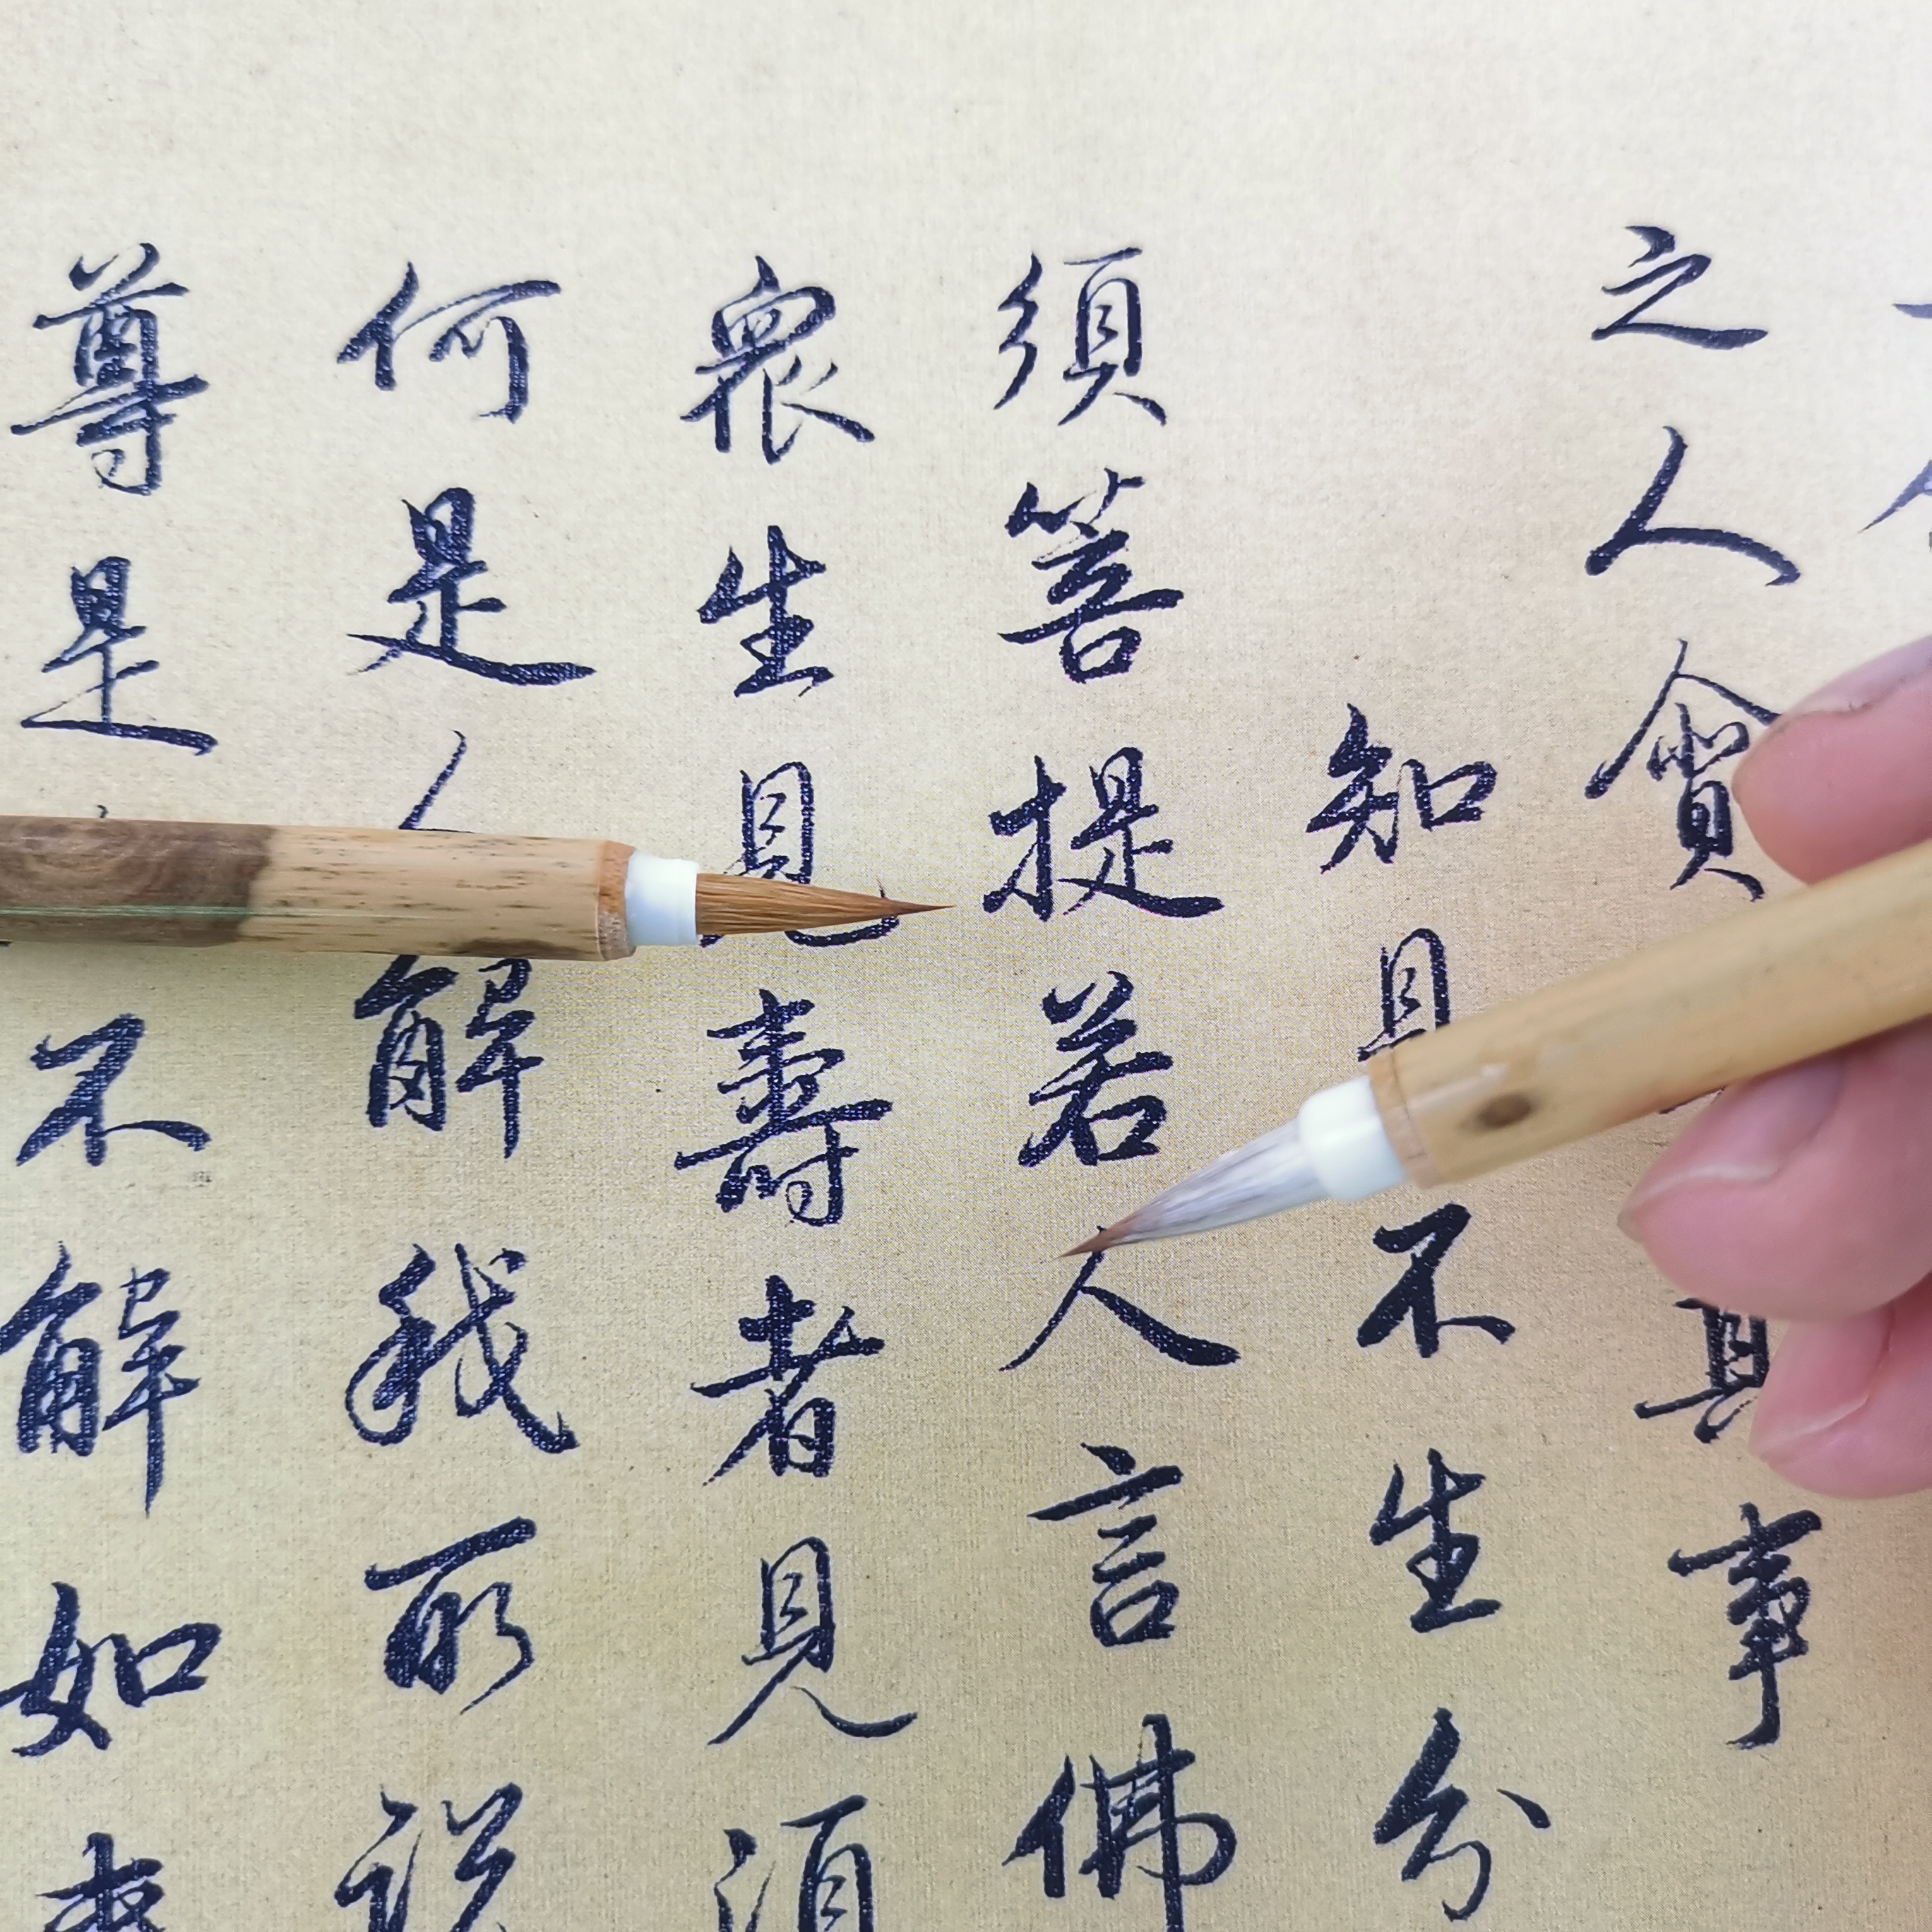 之人貪其事
知見不生分
須菩提若人言佛
眾生見壽者見須
何是人解我所說
尊是不解如來